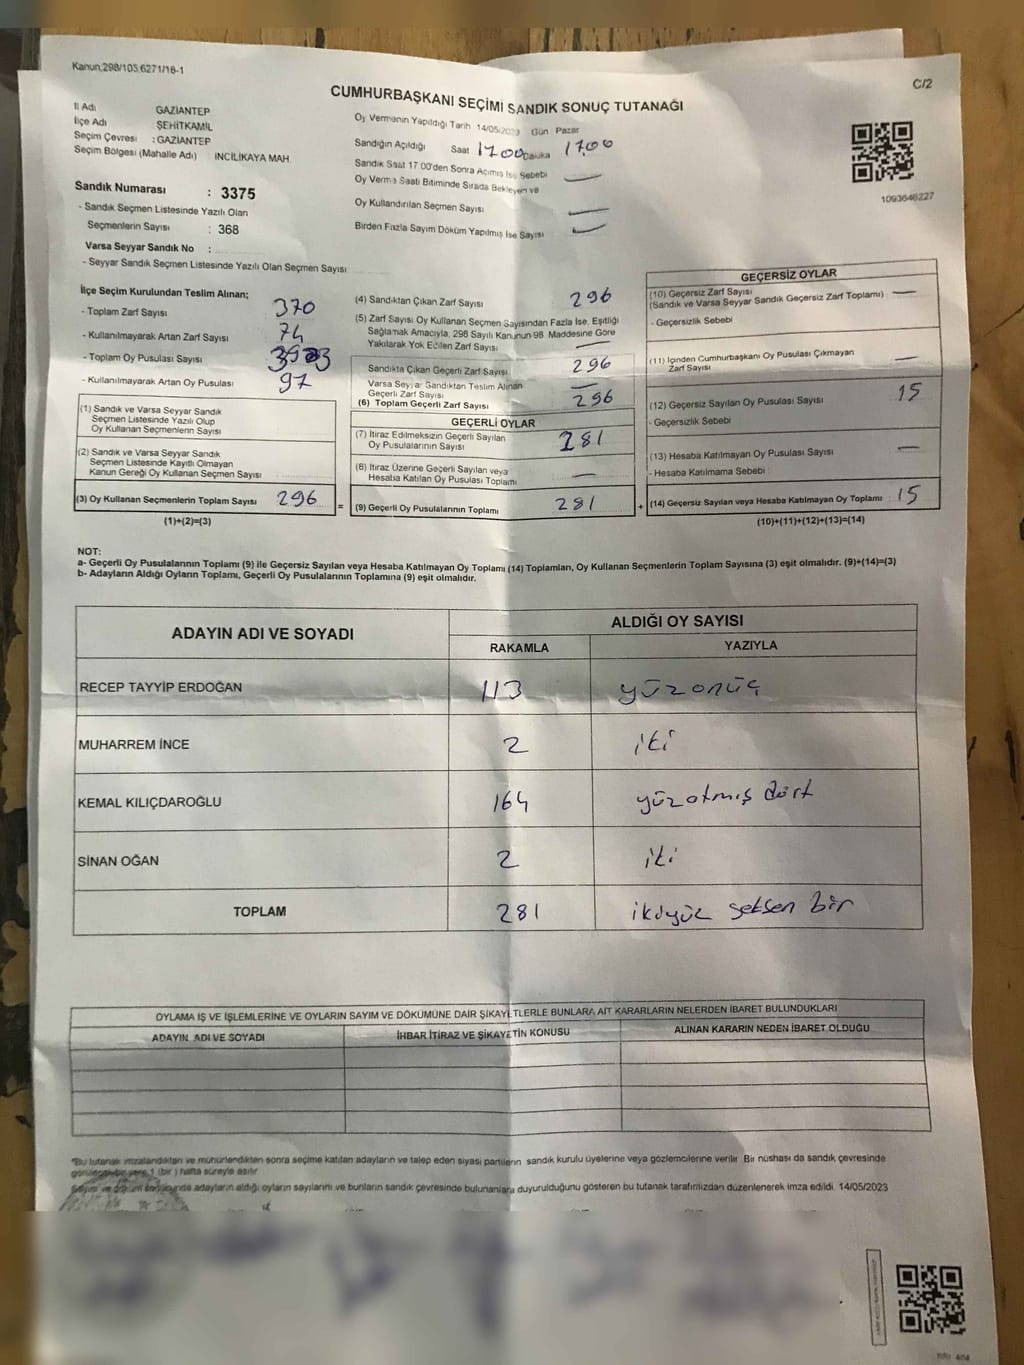 Kanun:298/103,6271/18-1
C/2
CUMHURBAŞKANI SEÇİMİ SANDIK SONUÇ TUTANAĞI
İl Adı GAZİANTEP
İlçe Adı ŞEHİTKAMİL
Seçim Çevresi : GAZİANTEP
Seçim Bölgesi (Mahalle Adı) İNCİLİKAYA MAH.
Sandık Numarası : 3375
- Sandık Seçmen Listesinde Yazılı Olan
Seçmenlerin Sayısı : 368
Varsa Seyyar Sandık No :
- Seyyar Sandık Seçmen Listesinde Yazılı Olan Seçmen Sayısı
Oy Vermenin Yapıldığı Tarih 14/05/2023 Gün Pazar
Sandığın Açıldığı Saat 1700 Dakika 17.00
Sandık Saat 17.00'den Sonra Açımış İse Sebebi
Oy Verme Saati Bitiminde Sırada Bekleyen ve
Oy Kullandırılan Seçmen Sayısı
Birden Fazla Sayım Döküm Yapılmış İse Sayısı
1093646227
İlçe Seçim Kurulundan Teslim Alınan;
- Toplam Zarf Sayısı 370
- Kullanılmayarak Artan Zarf Sayısı 74
- Toplam Oy Pusulası Sayısı
- Kullanılmayarak Artan Oy Pusulası 97
(1) Sandık ve Varsa Seyyar Sandık
Seçmen Listesinde Yazılı Olup
Oy Kullanan Seçmenlerin Sayısı
(2) Sandık ve Varsa Seyyar Sandık
Seçmen Listesinde Kayıtlı Olmayan
Kanun Gereği Oy Kullanan Seçmen Sayısı
(3) Oy Kullanan Seçmenlerin Toplam Sayısı 296 =
(1)+(2)=(3)
(4) Sandıktan Çıkan Zarf Sayısı 296
(5) Zarf Sayısı Oy Kullanan Seçmen Sayısından Fazla İse, Eşitliği
Sağlamak Amacıyla, 298 Sayılı Kanunun 98. Maddesine Göre
Yakılarak Yok Edilen Zarf Sayısı
Sandıkta Çıkan Geçerli Zarf Sayısı 296
Varsa Seyyar Sandıktan Teslim Alınan
Geçerli Zarf Sayısı
(6) Toplam Geçerli Zarf Sayısı 296
GEÇERLİ OYLAR
(7) İtiraz Edilmeksizin Geçerli Sayılan
Oy Pusulalarının Sayısı 281
(8) İtiraz Üzerine Geçerli Sayılan veya
Hesaba Katılan Oy Pusulası Toplamı
(9) Geçerli Oy Pusulalarının Toplamı 281 +
GEÇERSİZ OYLAR
(10) Geçersiz Zarf Sayısı
(Sandık ve Varsa Seyyar Sandık Geçersiz Zarf Toplamı)
- Geçersizlik Sebebi
(11) İçinden Cumhurbaşkanı Oy Pusulası Çıkmayan
Zarf Sayısı
(12) Geçersiz Sayılan Oy Pusulası Sayısı 15
- Geçersizlik Sebebi
(13) Hesaba Katılmayan Oy Pusulası Sayısı
- Hesaba Katılmama Sebebi
(14) Geçersiz Sayılan veya Hesaba Katılmayan Oy Toplamı 15
(10)+(11)+(12)+(13)=(14)
NOT:
a- Geçerli Oy Pusulalarının Toplamı (9) ile Geçersiz Sayılan veya Hesaba Katılmayan Oy Toplamı (14) Toplamları, Oy Kullanan Seçmenlerin Toplam Sayısına (3) eşit olmalıdır. (9)+(14)=(3)
b- Adayların Aldığı Oyların Toplamı, Geçerli Oy Pusulalarının Toplamına (9) eşit olmalıdır.
ADAYIN ADI VE SOYADI ALDIĞI OY SAYISI
RAKAMLA YAZIYLA
RECEP TAYYİP ERDOĞAN 113 yüzonüç
MUHARREM İNCE 2 iki
KEMAL KILIÇDAROĞLU 164 yüzatmış dört
SİNAN OĞAN 2 iki
TOPLAM 281 ikiyüz seksen bir
OYLAMA İŞ VE İŞLEMLERİNE VE OYLARIN SAYIM VE DÖKÜMÜNE DAİR ŞİKAYETLERLE BUNLARA AİT KARARLARIN NELERDEN İBARET BULUNDUKLARI
ADAYIN ADI VE SOYADI İHBAR İTİRAZ VE ŞİKAYETİN KONUSU ALINAN KARARIN NEDEN İBARET OLDUĞU
*Bu tutanak imzalandıktan ve mühürlendikten sonra seçime katılan adayların ve talep eden siyasi partilerin sandık kurulu üyelerine veya gözlemcilerine verilir. Bir nüshası da sandık çevresinde
görülebilir yere 1 (bir) hafta süreyle asılır.
Sayım ve döküm sonucunda adayların aldığı oyların sayılarını ve bunların sandık çevresinde bulunanlara duyurulduğunu gösteren bu tutanak tarafımızdan düzenlenerek imza edildi. 14/05/2023